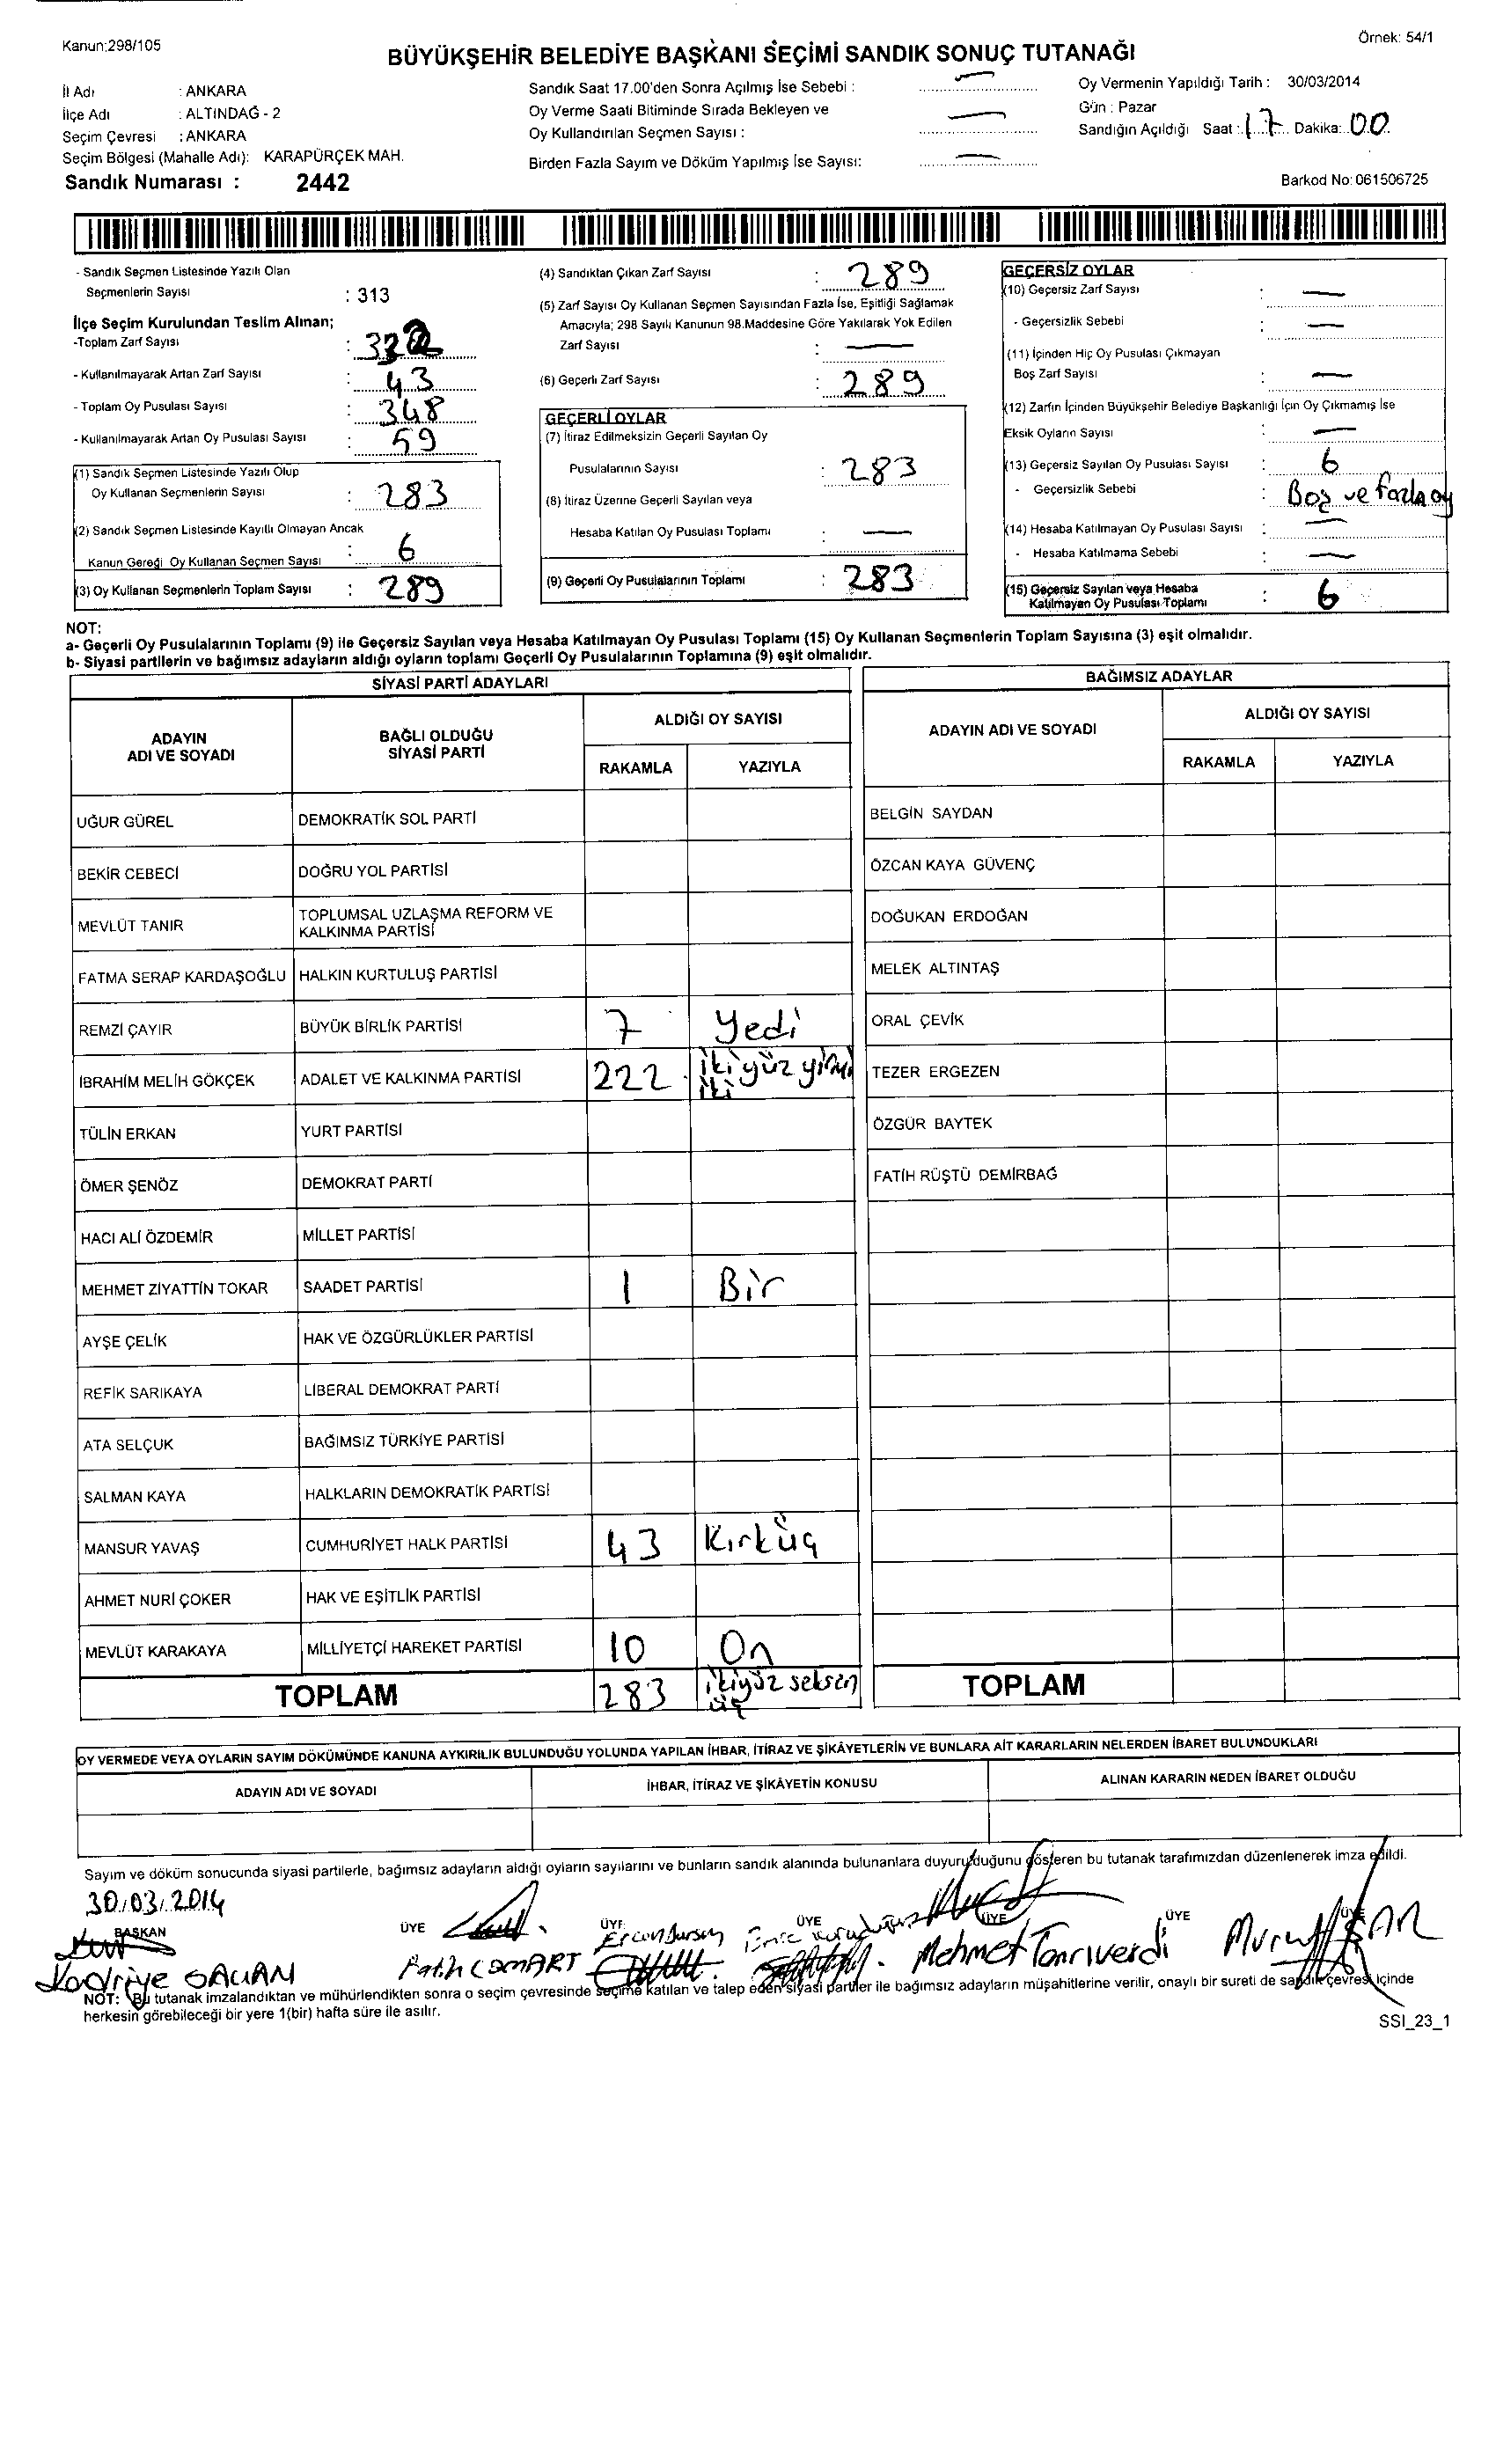 Kanun:298/105
Örnek: 54/1
BÜYÜKŞEHİR BELEDİYE BAŞKANI SEÇİMİ SANDIK SONUÇ TUTANAĞI
İl Adı : ANKARA
İlçe Adı : ALTINDAĞ - 2
Seçim Çevresi : ANKARA
Seçim Bölgesi (Mahalle Adı): KARAPÜRÇEK MAH.
Sandık Numarası : 2442
Sandık Saat 17.00'den Sonra Açılmış İse Sebebi : —
Oy Verme Saati Bitiminde Sırada Bekleyen ve
Oy Kullandırılan Seçmen Sayısı : —
Birden Fazla Sayım ve Döküm Yapılmış İse Sayısı: —
Oy Vermenin Yapıldığı Tarih : 30/03/2014
Gün : Pazar
Sandığın Açıldığı Saat : 17 Dakika: 00
Barkod No: 061506725
- Sandık Seçmen Listesinde Yazılı Olan
Seçmenlerin Sayısı : 313
İlçe Seçim Kurulundan Teslim Alınan;
-Toplam Zarf Sayısı :
- Kullanılmayarak Artan Zarf Sayısı : 43
- Toplam Oy Pusulası Sayısı : 348
- Kullanılmayarak Artan Oy Pusulası Sayısı : 59
(1) Sandık Seçmen Listesinde Yazılı Olup
Oy Kullanan Seçmenlerin Sayısı : 283
(2) Sandık Seçmen Listesinde Kayıtlı Olmayan Ancak
Kanun Gereği Oy Kullanan Seçmen Sayısı : 6
(3) Oy Kullanan Seçmenlerin Toplam Sayısı : 289
(4) Sandıktan Çıkan Zarf Sayısı : 289
(5) Zarf Sayısı Oy Kullanan Seçmen Sayısından Fazla İse, Eşitliği Sağlamak
Amacıyla; 298 Sayılı Kanunun 98.Maddesine Göre Yakılarak Yok Edilen
Zarf Sayısı : —
(6) Geçerli Zarf Sayısı : 289
GEÇERLİ OYLAR
(7) İtiraz Edilmeksizin Geçerli Sayılan Oy
Pusulalarının Sayısı : 283
(8) İtiraz Üzerine Geçerli Sayılan veya
Hesaba Katılan Oy Pusulası Toplamı : —
(9) Geçerli Oy Pusulalarının Toplamı : 283
GEÇERSİZ OYLAR
(10) Geçersiz Zarf Sayısı : —
- Geçersizlik Sebebi : —
(11) İçinden Hiç Oy Pusulası Çıkmayan
Boş Zarf Sayısı : —
(12) Zarfın İçinden Büyükşehir Belediye Başkanlığı İçin Oy Çıkmamış İse
Eksik Oyların Sayısı : —
(13) Geçersiz Sayılan Oy Pusulası Sayısı : 6
- Geçersizlik Sebebi : Boş ve fazla oy
(14) Hesaba Katılmayan Oy Pusulası Sayısı : —
- Hesaba Katılmama Sebebi : —
(15) Geçersiz Sayılan veya Hesaba
Katılmayan Oy Pusulası Toplamı : 6
NOT:
a- Geçerli Oy Pusulalarının Toplamı (9) ile Geçersiz Sayılan veya Hesaba Katılmayan Oy Pusulası Toplamı (15) Oy Kullanan Seçmenlerin Toplam Sayısına (3) eşit olmalıdır.
b- Siyasi partilerin ve bağımsız adayların aldığı oyların toplamı Geçerli Oy Pusulalarının Toplamına (9) eşit olmalıdır.
SİYASİ PARTİ ADAYLARI
ADAYIN ADI VE SOYADI
BAĞLI OLDUĞU SİYASİ PARTİ
ALDIĞI OY SAYISI
RAKAMLA YAZIYLA
UĞUR GÜREL DEMOKRATİK SOL PARTİ
BEKİR CEBECİ DOĞRU YOL PARTİSİ
MEVLÜT TANIR TOPLUMSAL UZLAŞMA REFORM VE KALKINMA PARTİSİ
FATMA SERAP KARDAŞOĞLU HALKIN KURTULUŞ PARTİSİ
REMZİ ÇAYIR BÜYÜK BİRLİK PARTİSİ 7 Yedi
İBRAHİM MELİH GÖKÇEK ADALET VE KALKINMA PARTİSİ 222 ikiyüz yirmi iki
TÜLİN ERKAN YURT PARTİSİ
ÖMER ŞENÖZ DEMOKRAT PARTİ
HACI ALİ ÖZDEMİR MİLLET PARTİSİ
MEHMET ZİYATTİN TOKAR SAADET PARTİSİ 1 Bir
AYŞE ÇELİK HAK VE ÖZGÜRLÜKLER PARTİSİ
REFİK SARIKAYA LİBERAL DEMOKRAT PARTİ
ATA SELÇUK BAĞIMSIZ TÜRKİYE PARTİSİ
SALMAN KAYA HALKLARIN DEMOKRATİK PARTİSİ
MANSUR YAVAŞ CUMHURİYET HALK PARTİSİ 43 Kırküç
AHMET NURİ ÇOKER HAK VE EŞİTLİK PARTİSİ
MEVLÜT KARAKAYA MİLLİYETÇİ HAREKET PARTİSİ 10 On
TOPLAM 283 ikiyüz seksen üç
BAĞIMSIZ ADAYLAR
ADAYIN ADI VE SOYADI
ALDIĞI OY SAYISI
RAKAMLA YAZIYLA
BELGİN SAYDAN
ÖZCAN KAYA GÜVENÇ
DOĞUKAN ERDOĞAN
MELEK ALTINTAŞ
ORAL ÇEVİK
TEZER ERGEZEN
ÖZGÜR BAYTEK
FATİH RÜŞTÜ DEMİRBAĞ
TOPLAM
OY VERMEDE VEYA OYLARIN SAYIM DÖKÜMÜNDE KANUNA AYKIRILIK BULUNDUĞU YOLUNDA YAPILAN İHBAR, İTİRAZ VE ŞİKÂYETLERİN VE BUNLARA AİT KARARLARIN NELERDEN İBARET BULUNDUKLARI
ADAYIN ADI VE SOYADI İHBAR, İTİRAZ VE ŞİKÂYETİN KONUSU ALINAN KARARIN NEDEN İBARET OLDUĞU
Sayım ve döküm sonucunda siyasi partilerle, bağımsız adayların aldığı oyların sayılarını ve bunların sandık alanında bulunanlara duyurulduğunu gösteren bu tutanak tarafımızdan düzenlenerek imza edildi.
30.03.2014
BAŞKAN ÜYE ÜYE ÜYE ÜYE ÜYE ÜYE
Ercan Dursun
Fatih COMART Mehmet Tanrıverdi
NOT: Bu tutanak imzalandıktan ve mühürlendikten sonra o seçim çevresinde seçime katılan ve talep eden siyasi partiler ile bağımsız adayların müşahitlerine verilir, onaylı bir sureti de sandık çevresi içinde
herkesin görebileceği bir yere 1(bir) hafta süre ile asılır.
SSI_23_1